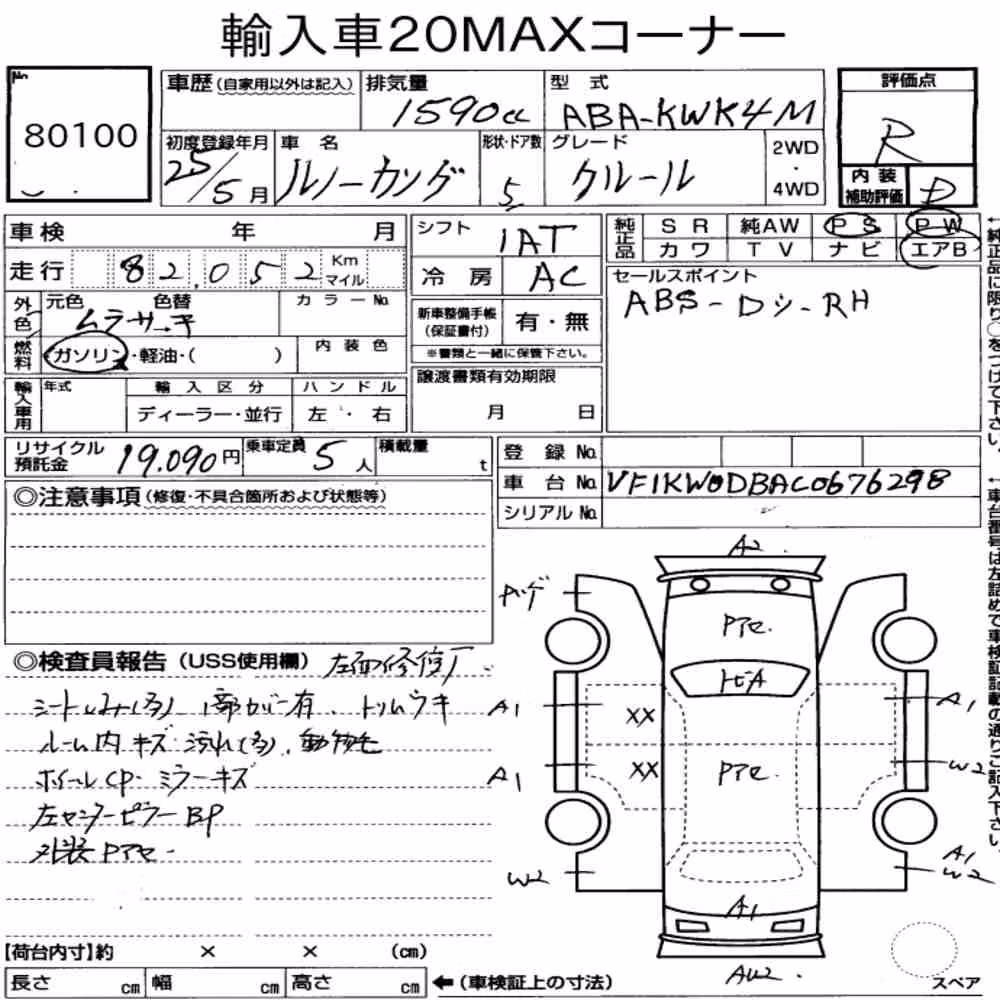 輸入車20MAXコーナー
No.
80100
車歴(自家用以外は記入)
排気量
1590cc
型式
ABA-KWK4M
評価点
R
初度登録年月
25/5月
車名
ルノーカングー
形状・ドア数
5
グレード
クルール
2WD
・
4WD
内装
補助評価
D
車検 年 月
走行 82,052 Km マイル
外色
元色 色替
ムラサキ
カラーNo.
燃料
ガソリン・軽油・( )
内装色
輸入車用
年式
輸入区分
ディーラー・並行
ハンドル
左・右
シフト
IAT
冷房
AC
新車整備手帳
(保証書付)
有・無
※書類と一緒に保管下さい。
譲渡書類有効期限
月 日
純正品
SR 純AW PS PW
カワ TV ナビ エアB
セールスポイント
ABS-Dシ-RH
←純正品に限り○をつけて下さい。
リサイクル
預託金
19,090円
乗車定員
5人
積載量
t
登録No.
車台No. VF1KW0DBAC0676298
シリアルNo.
←車台番号は左詰めで車検証記載の通りご記入下さい。
◎注意事項(修復・不具合箇所および状態等)
◎検査員報告(USS使用欄) 左面修復厂
シートしみ(多) 1部カバー有、トリムウキ
ルーム内キズ汚れ(多)、動物毛
ホイールCP・ミラーキズ
左センターピラーBP
外装Pアセ
A2
Pアセ
A1
XX
A1
A1
XX
Pアセ
W2
W2
A1
A1
W2
AW2
スペア
【荷台内寸】約 × × (cm)
長さ cm 幅 cm 高さ cm ←(車検証上の寸法)